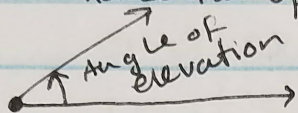 Angle of
elevation